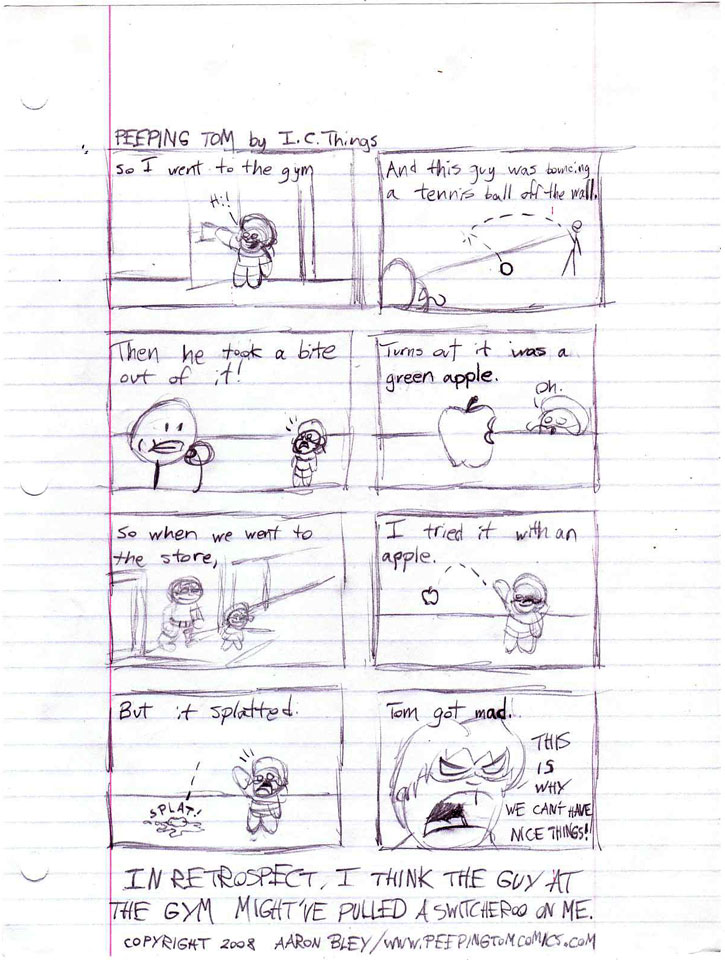 PEEPING TOM by I.C. Things
So I went to the gym
Hi!
And this guy was bouncing
a tennis ball off the wall.
Then he took a bite
out of it!
Turns out it was a
green apple.
Oh.
So when we went to
the store,
I tried it with an
apple.
But it splatted.
SPLAT!
Tom got mad.
THIS
IS
WHY
WE CANT HAVE
NICE THINGS!
IN RETROSPECT, I THINK THE GUY AT
THE GYM MIGHT'VE PULLED A SWITCHEROO ON ME.
COPYRIGHT 2008 AARON BLEY/WWW.PEEPINGTOMCOMICS.COM